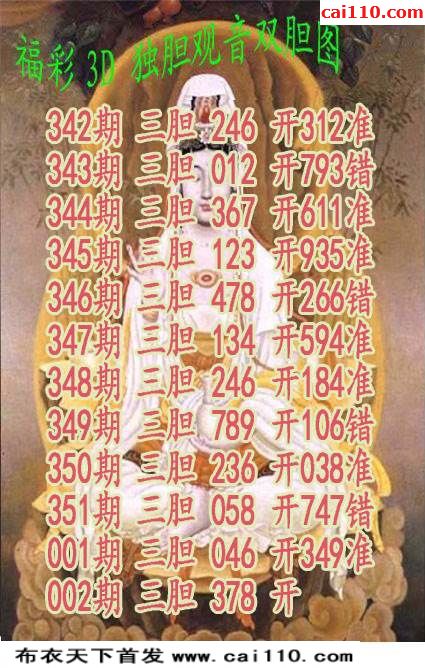 cai110.com
福彩 3D 独胆观音双胆图
342期 三胆 246 开312准
343期 三胆 012 开793错
344期 三胆 367 开611准
345期 三胆 123 开935准
346期 三胆 478 开266错
347期 三胆 134 开594准
348期 三胆 246 开184准
349期 三胆 789 开106错
350期 三胆 236 开038准
351期 三胆 058 开747错
001期 三胆 046 开349准
002期 三胆 378 开
布衣天下首发 www.cai110.com